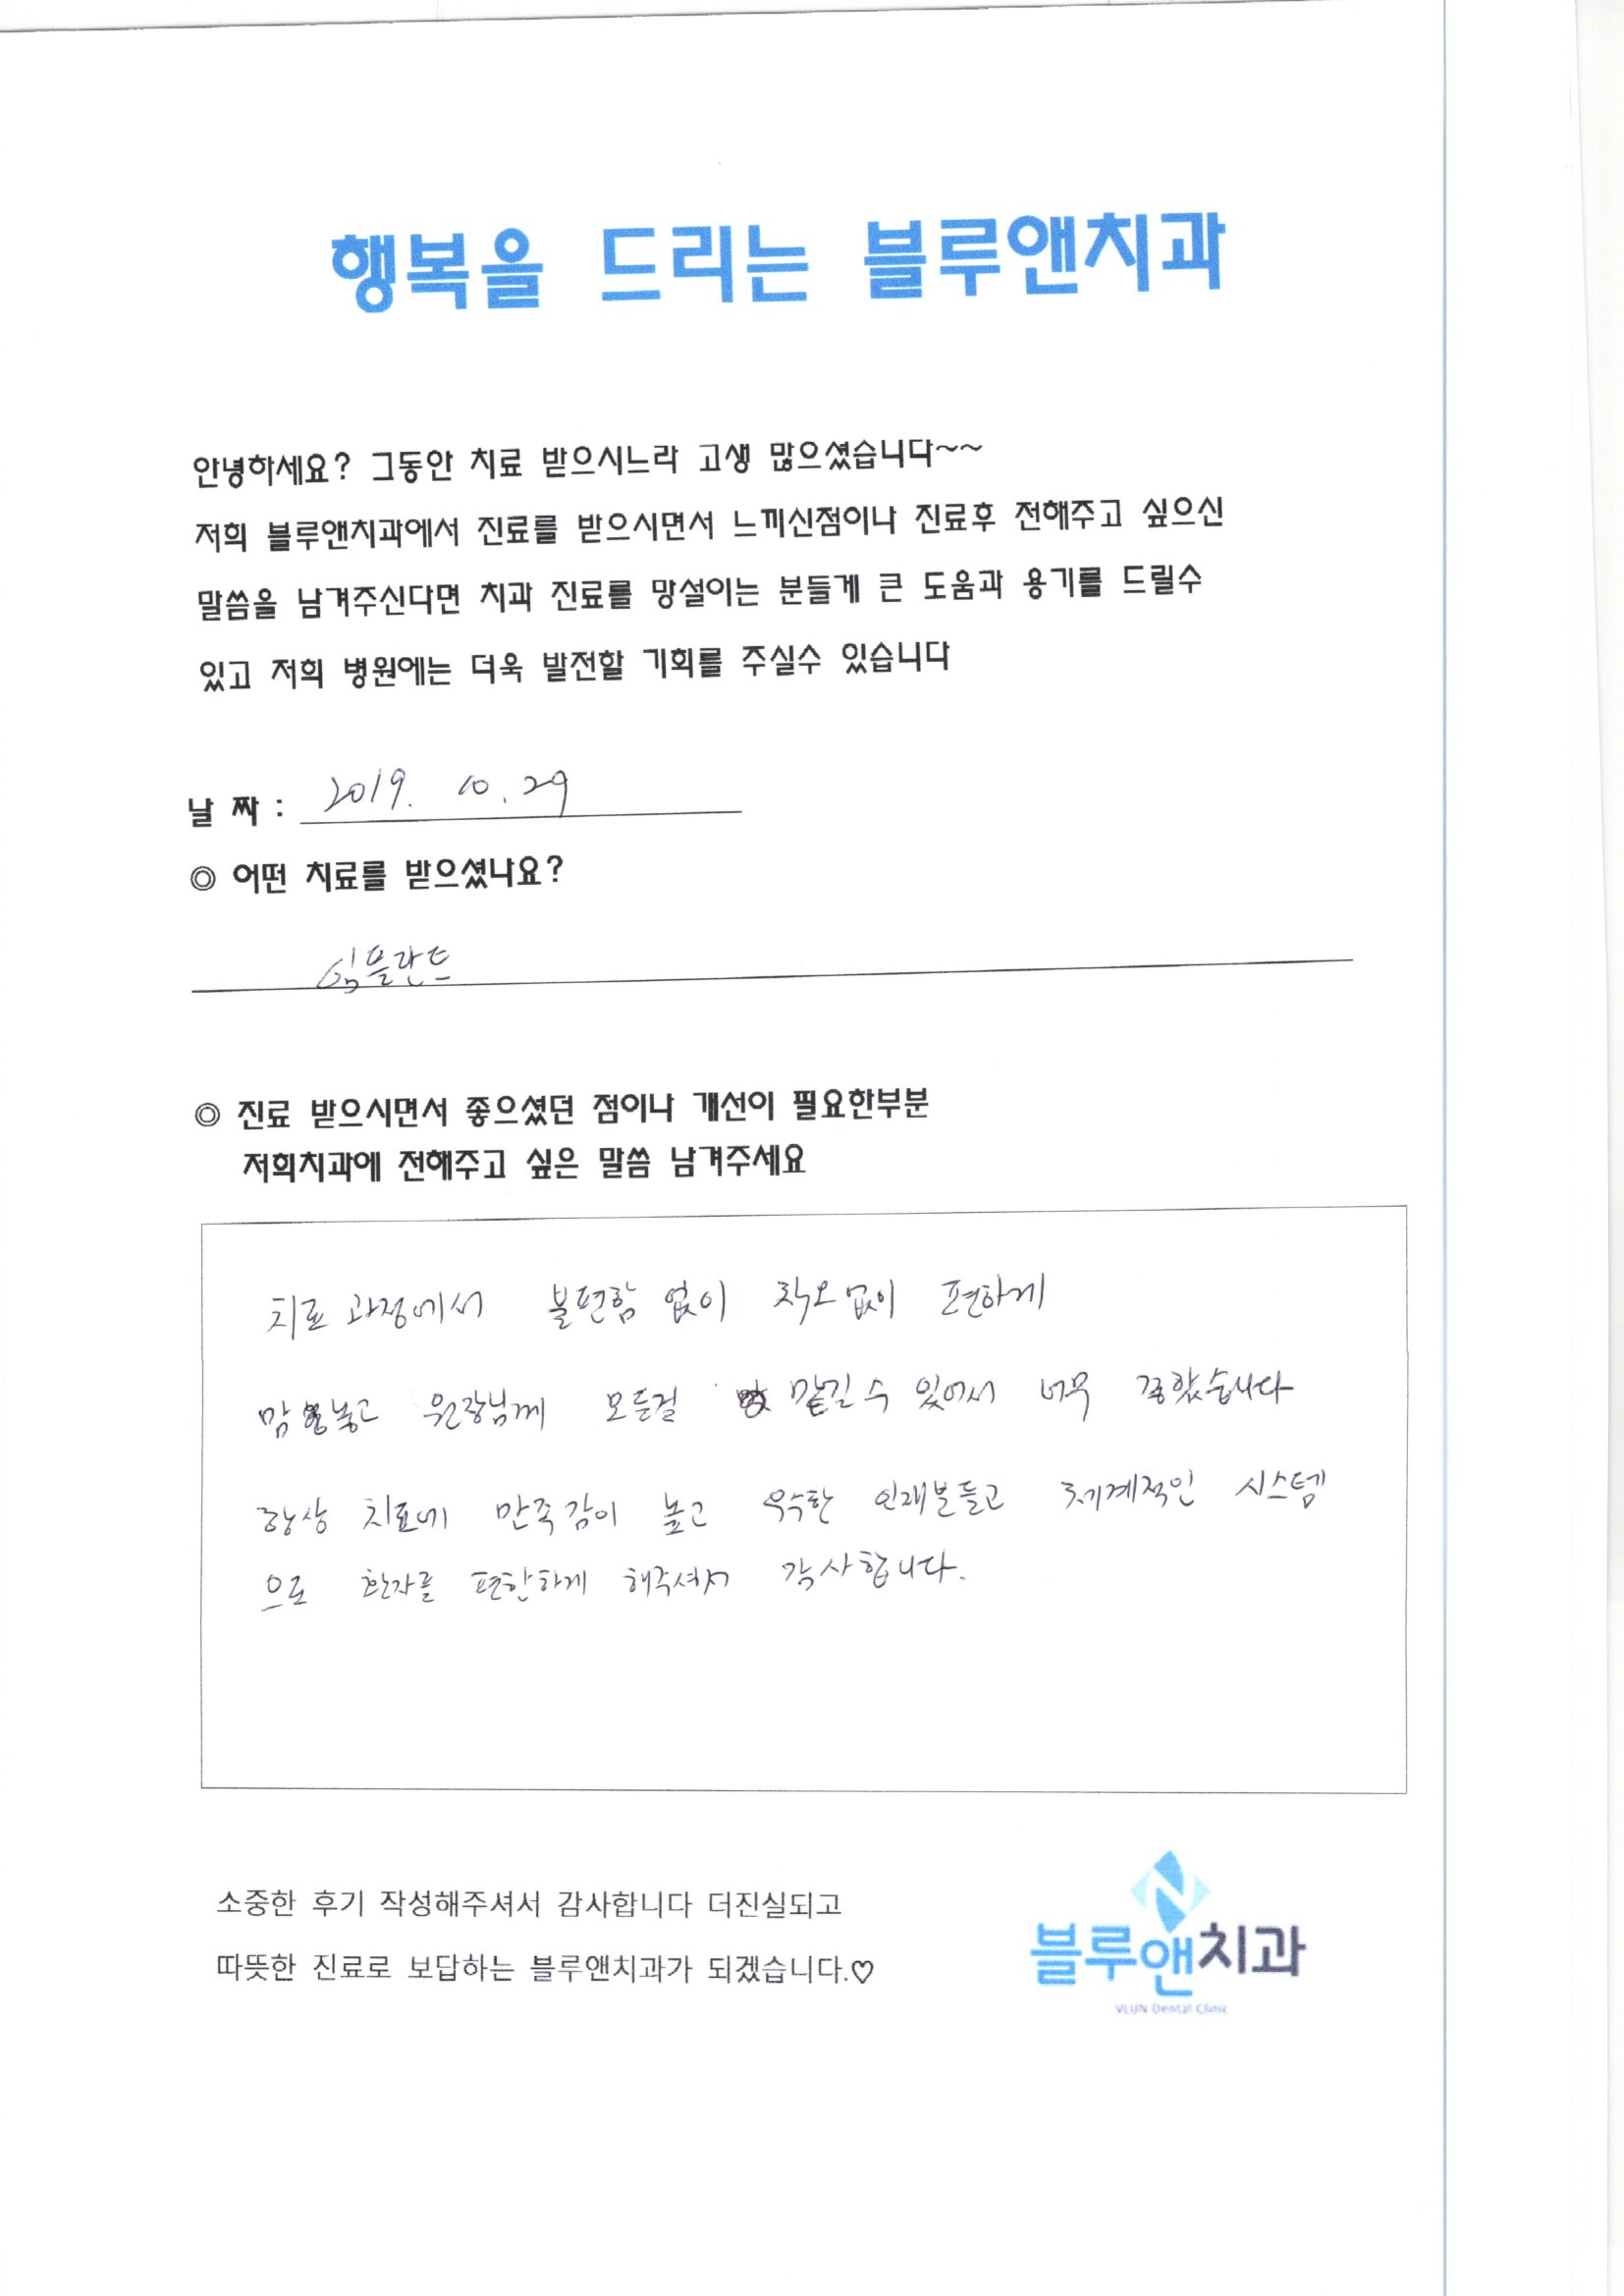 행복을 드리는 블루앤치과
안녕하세요? 그동안 치료 받으시느라 고생 많으셨습니다~~
저희 블루앤치과에서 진료를 받으시면서 느끼신점이나 진료후 전해주고 싶으신
말씀을 남겨주신다면 치과 진료를 망설이는 분들게 큰 도움과 용기를 드릴수
있고 저희 병원에는 더욱 발전할 기회를 주실수 있습니다
날 짜 : 2019. 10. 29
◎ 어떤 치료를 받으셨나요?
임플란트
◎ 진료 받으시면서 좋으셨던 점이나 개선이 필요한부분
저희치과에 전해주고 싶은 말씀 남겨주세요
치료 과정에서 불편함 없이 착오없이 편하게
맘 놓고 원장님께 모든걸 맡길 수 있어서 너무 좋았습니다
항상 치료에 만족감이 높고 우수한 인재분들과 체계적인 시스템
으로 환자를 편한하게 해주셔서 감사합니다.
소중한 후기 작성해주셔서 감사합니다 더진실되고
따뜻한 진료로 보답하는 블루앤치과가 되겠습니다.♡
블루앤치과
VLUN Dental Clinic